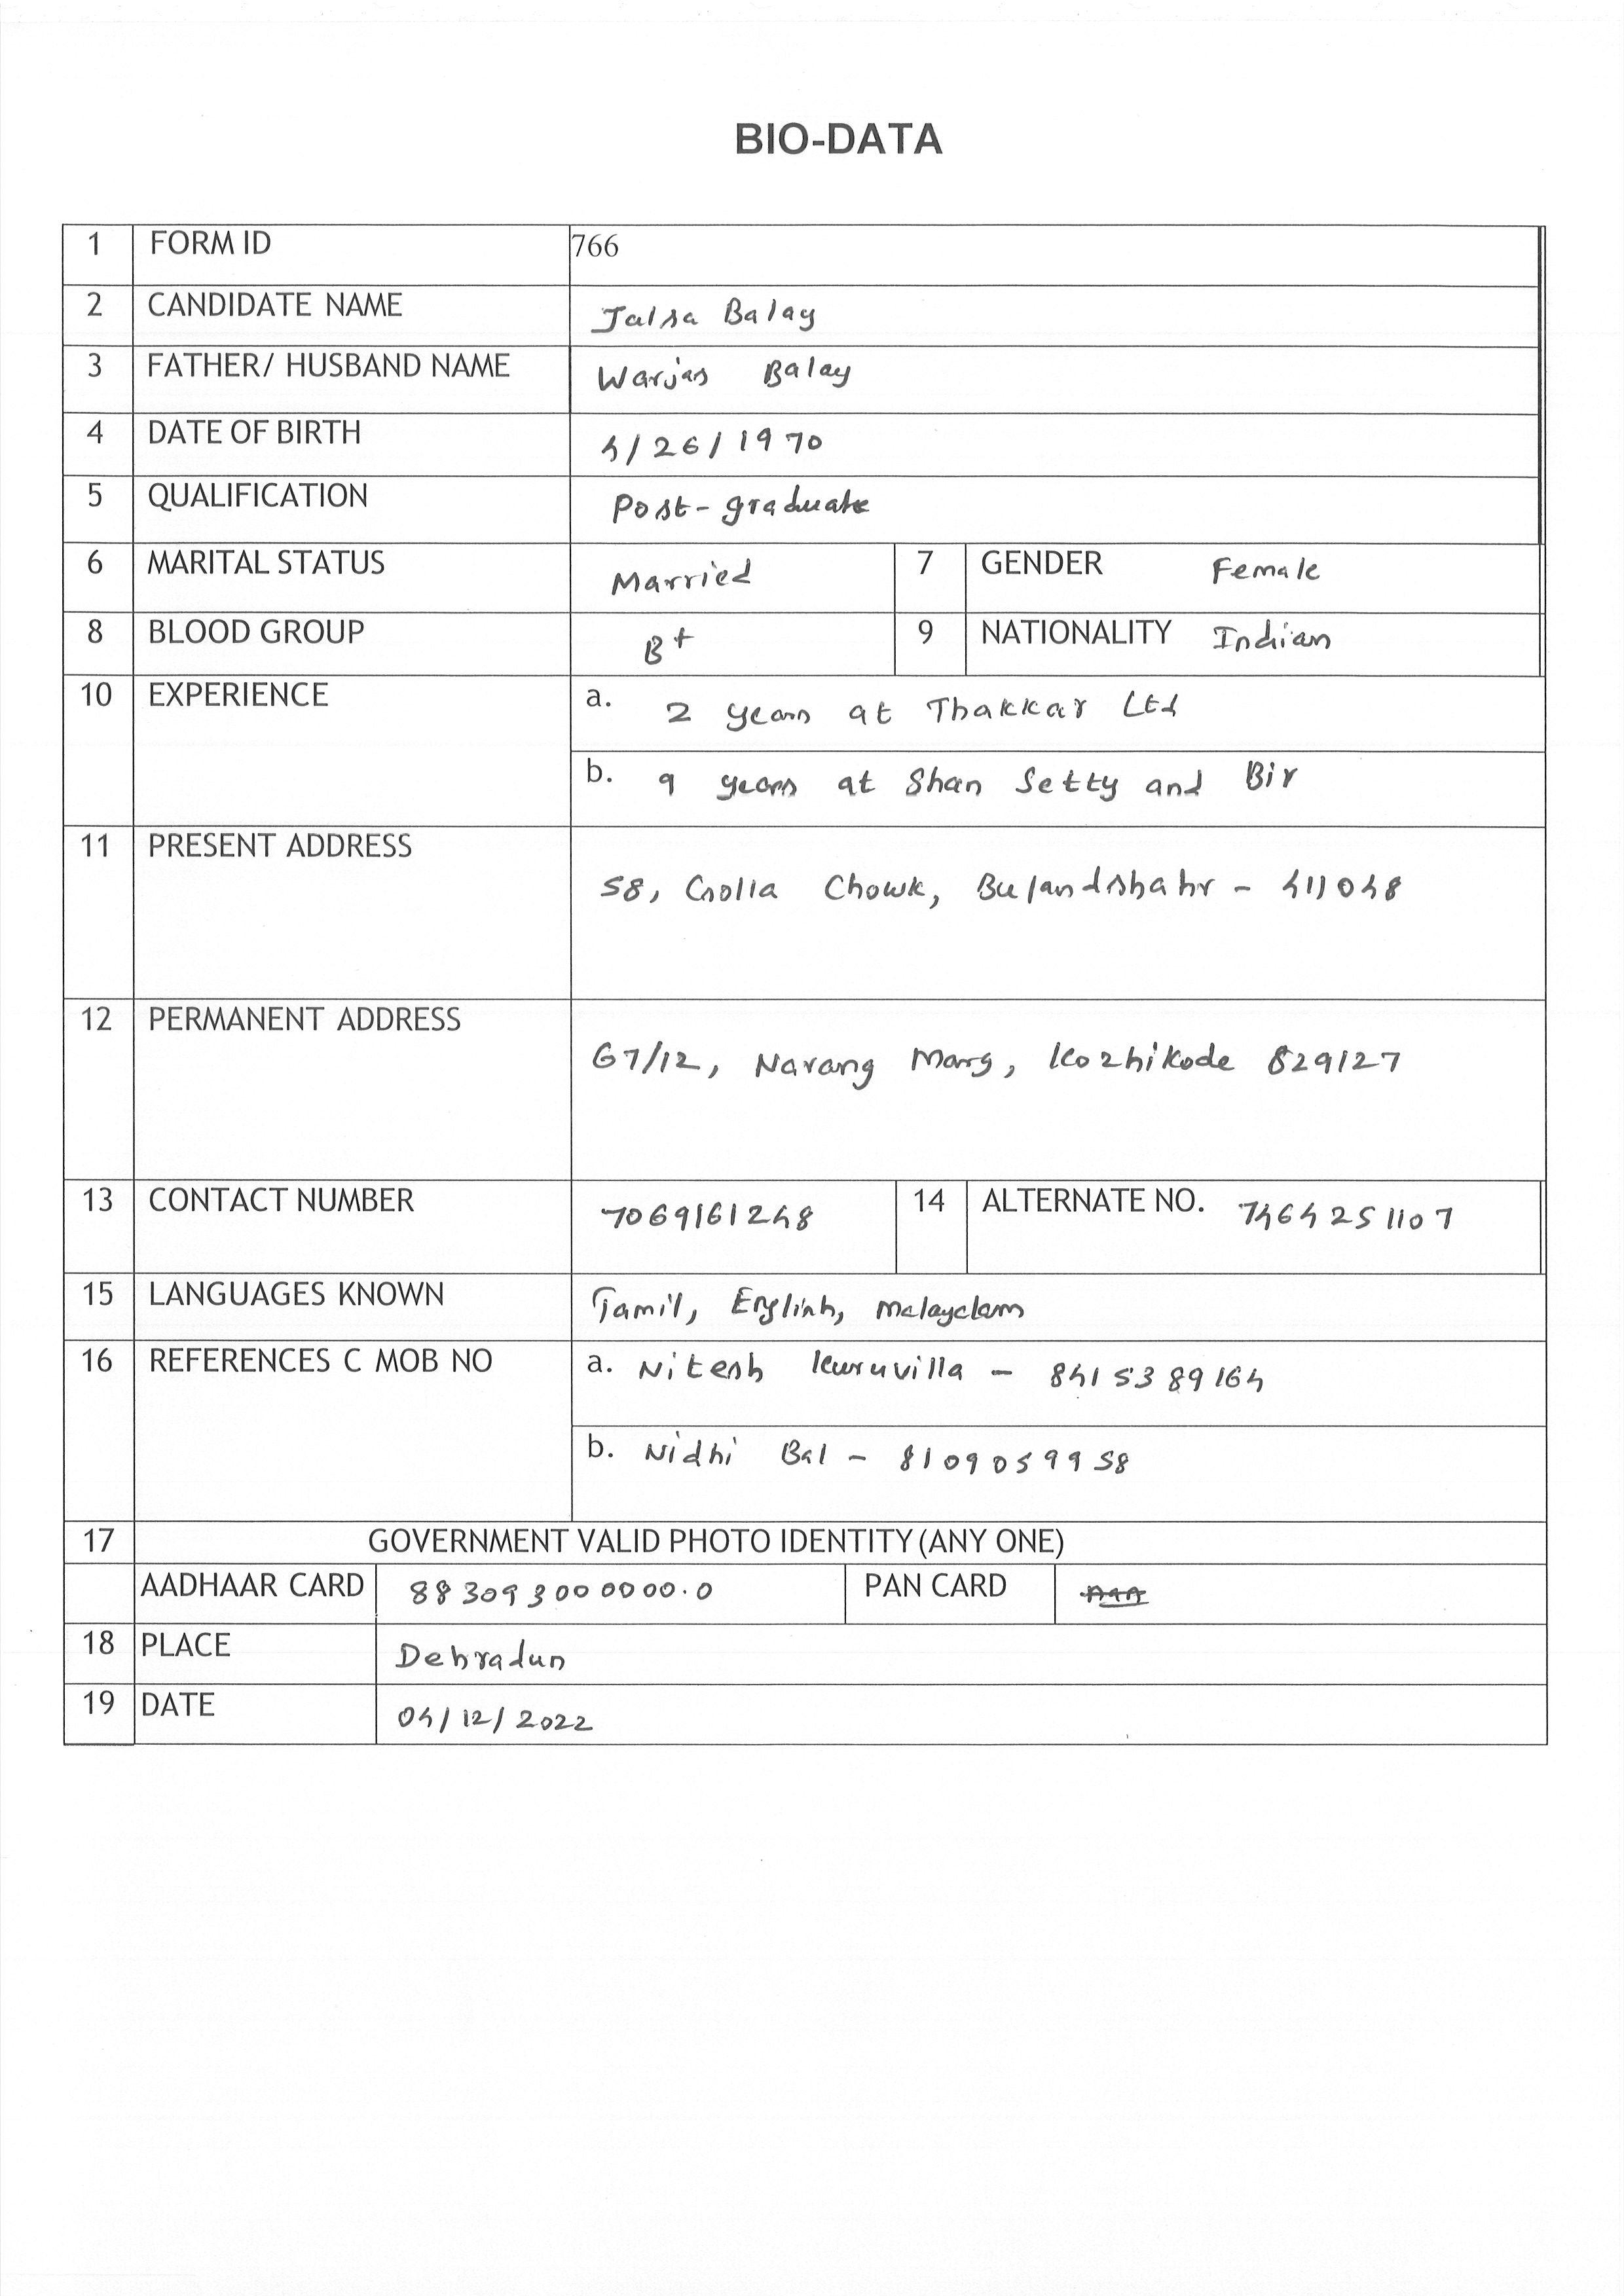 BIO-DATA
1 FORM ID 766
2 CANDIDATE NAME Jalsa Balay
3 FATHER/ HUSBAND NAME Warjas Balay
4 DATE OF BIRTH 4/26/1970
5 QUALIFICATION Post-graduate
6 MARITAL STATUS Married 7 GENDER Female
8 BLOOD GROUP B+ 9 NATIONALITY Indian
10 EXPERIENCE a. 2 years at Thakkar Ltd
b. 9 years at Shan Setty and Bir
11 PRESENT ADDRESS
58, Golla Chowk, Bulandshahr - 411048
12 PERMANENT ADDRESS
67/12, Narang Marg, Kozhikode 829127
13 CONTACT NUMBER 7069161248 14 ALTERNATE NO. 7464251107
15 LANGUAGES KNOWN Tamil, English, Malayalam
16 REFERENCES C MOB NO a. Nitesh Kuruvilla - 8415389164
b. Nidhi Bal - 8109059958
17 GOVERNMENT VALID PHOTO IDENTITY (ANY ONE)
AADHAAR CARD 883093000000.0 PAN CARD
18 PLACE Dehradun
19 DATE 04/12/2022